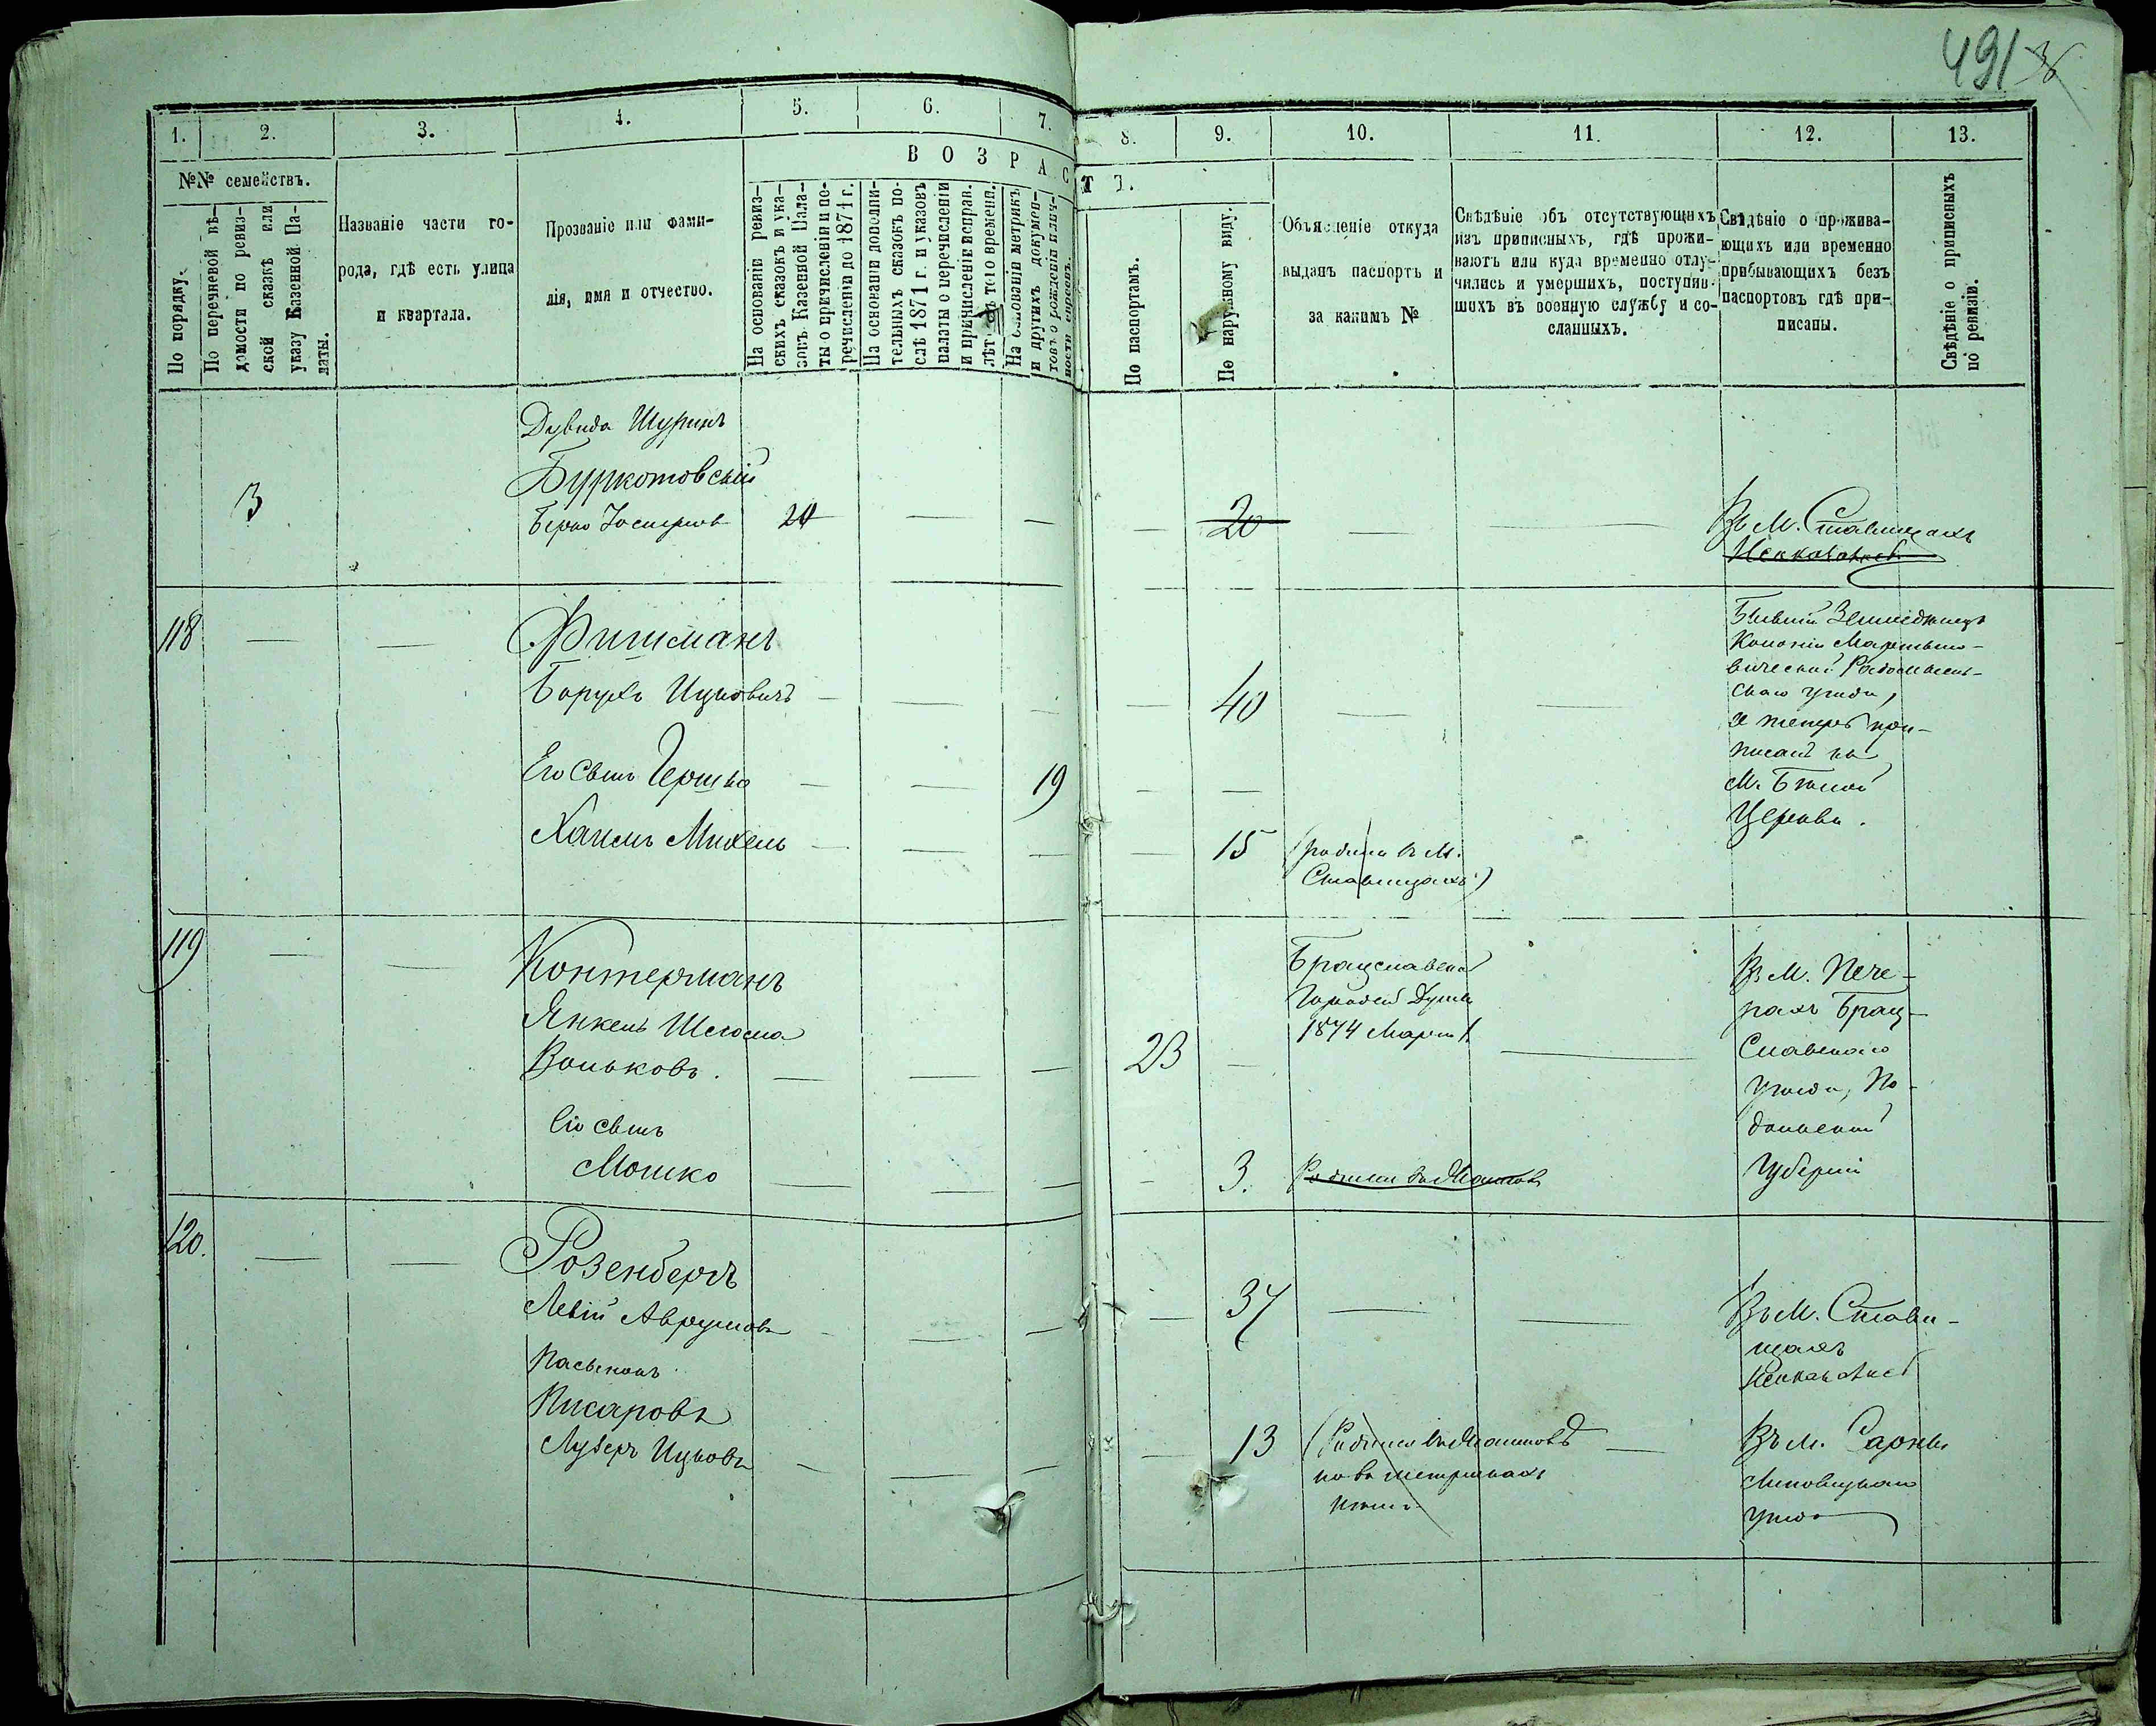 491 36
1.
2.
3.
4.
5.
6.
7.
8.
9.
10.
11.
12.
13.
№№ семействъ.
ВОЗРАС
Т Ъ.
По порядку.
По перечневой вѣ-
домости по ревиз-
ской сказкѣ или
указу Казенной Па-
латы.
Названіе части го-
рода, гдѣ есть улица
и квартала.
Прозваніе или фами-
лія, имя и отчество.
На основаніи ревиз-
скихъ сказокъ и ука-
зовъ Казенной Пала-
ты о причисленіи и пе-
речисленіи до 1871 г.
На основаніи дополни-
тельныхъ сказокъ по-
слѣ 1871 г. и указовъ
палаты о перечисленіи
и причисленіе исправ.
лѣтъ по времени.
На основаніи метрикъ
и другихъ докумен-
товъ о рожденіи и лич-
ности справокъ.
По паспортамъ.
По наружному виду.
Объясненіе откуда
выданъ паспортъ и
за какимъ №
Свѣдѣніе объ отсутствующихъ
изъ приписныхъ, гдѣ прожи-
ваютъ или куда временно отлу-
чились и умершихъ, поступив-
шихъ въ военную службу и со-
сланныхъ.
Свѣдѣніе о прожива-
ющихъ или временно
прибывающихъ безъ
паспортовъ гдѣ при-
писаны.
Свѣдѣніе о приписныхъ
по ревизіи.
Дувида Шуринъ
3
Буркотовскій
Берко
20
Въ М. Ставищахъ
118
Фишманъ
Борухъ Ицковичъ
40
Бывшій Земледѣлецъ
Колоніи
Радомысль-
скаго уѣзда,
а теперь при-
писанъ къ
М. Бѣлой
Церкви.
Его Сынъ Гершко
19
Хаимъ Михель
15
(родился въ М.
Ставищахъ)
119
Контерманъ
Янкель
Вольковъ.
23
Брацславской
Городской Думы
1874 Марта
Въ М. Пече-
рахъ Брац-
славскаго
уѣзда, По-
дольской
Губерніи
Его сынъ
Мошко
3.
Родился
120.
Розенбергъ
Левій Аврумовъ
37
Въ М. Стави-
щахъ
Пасынокъ
Писаровъ
Лузеръ Ицковъ
13
(Родился
но въ метрикахъ
нѣтъ
Въ М. Сарны
Липовецкаго